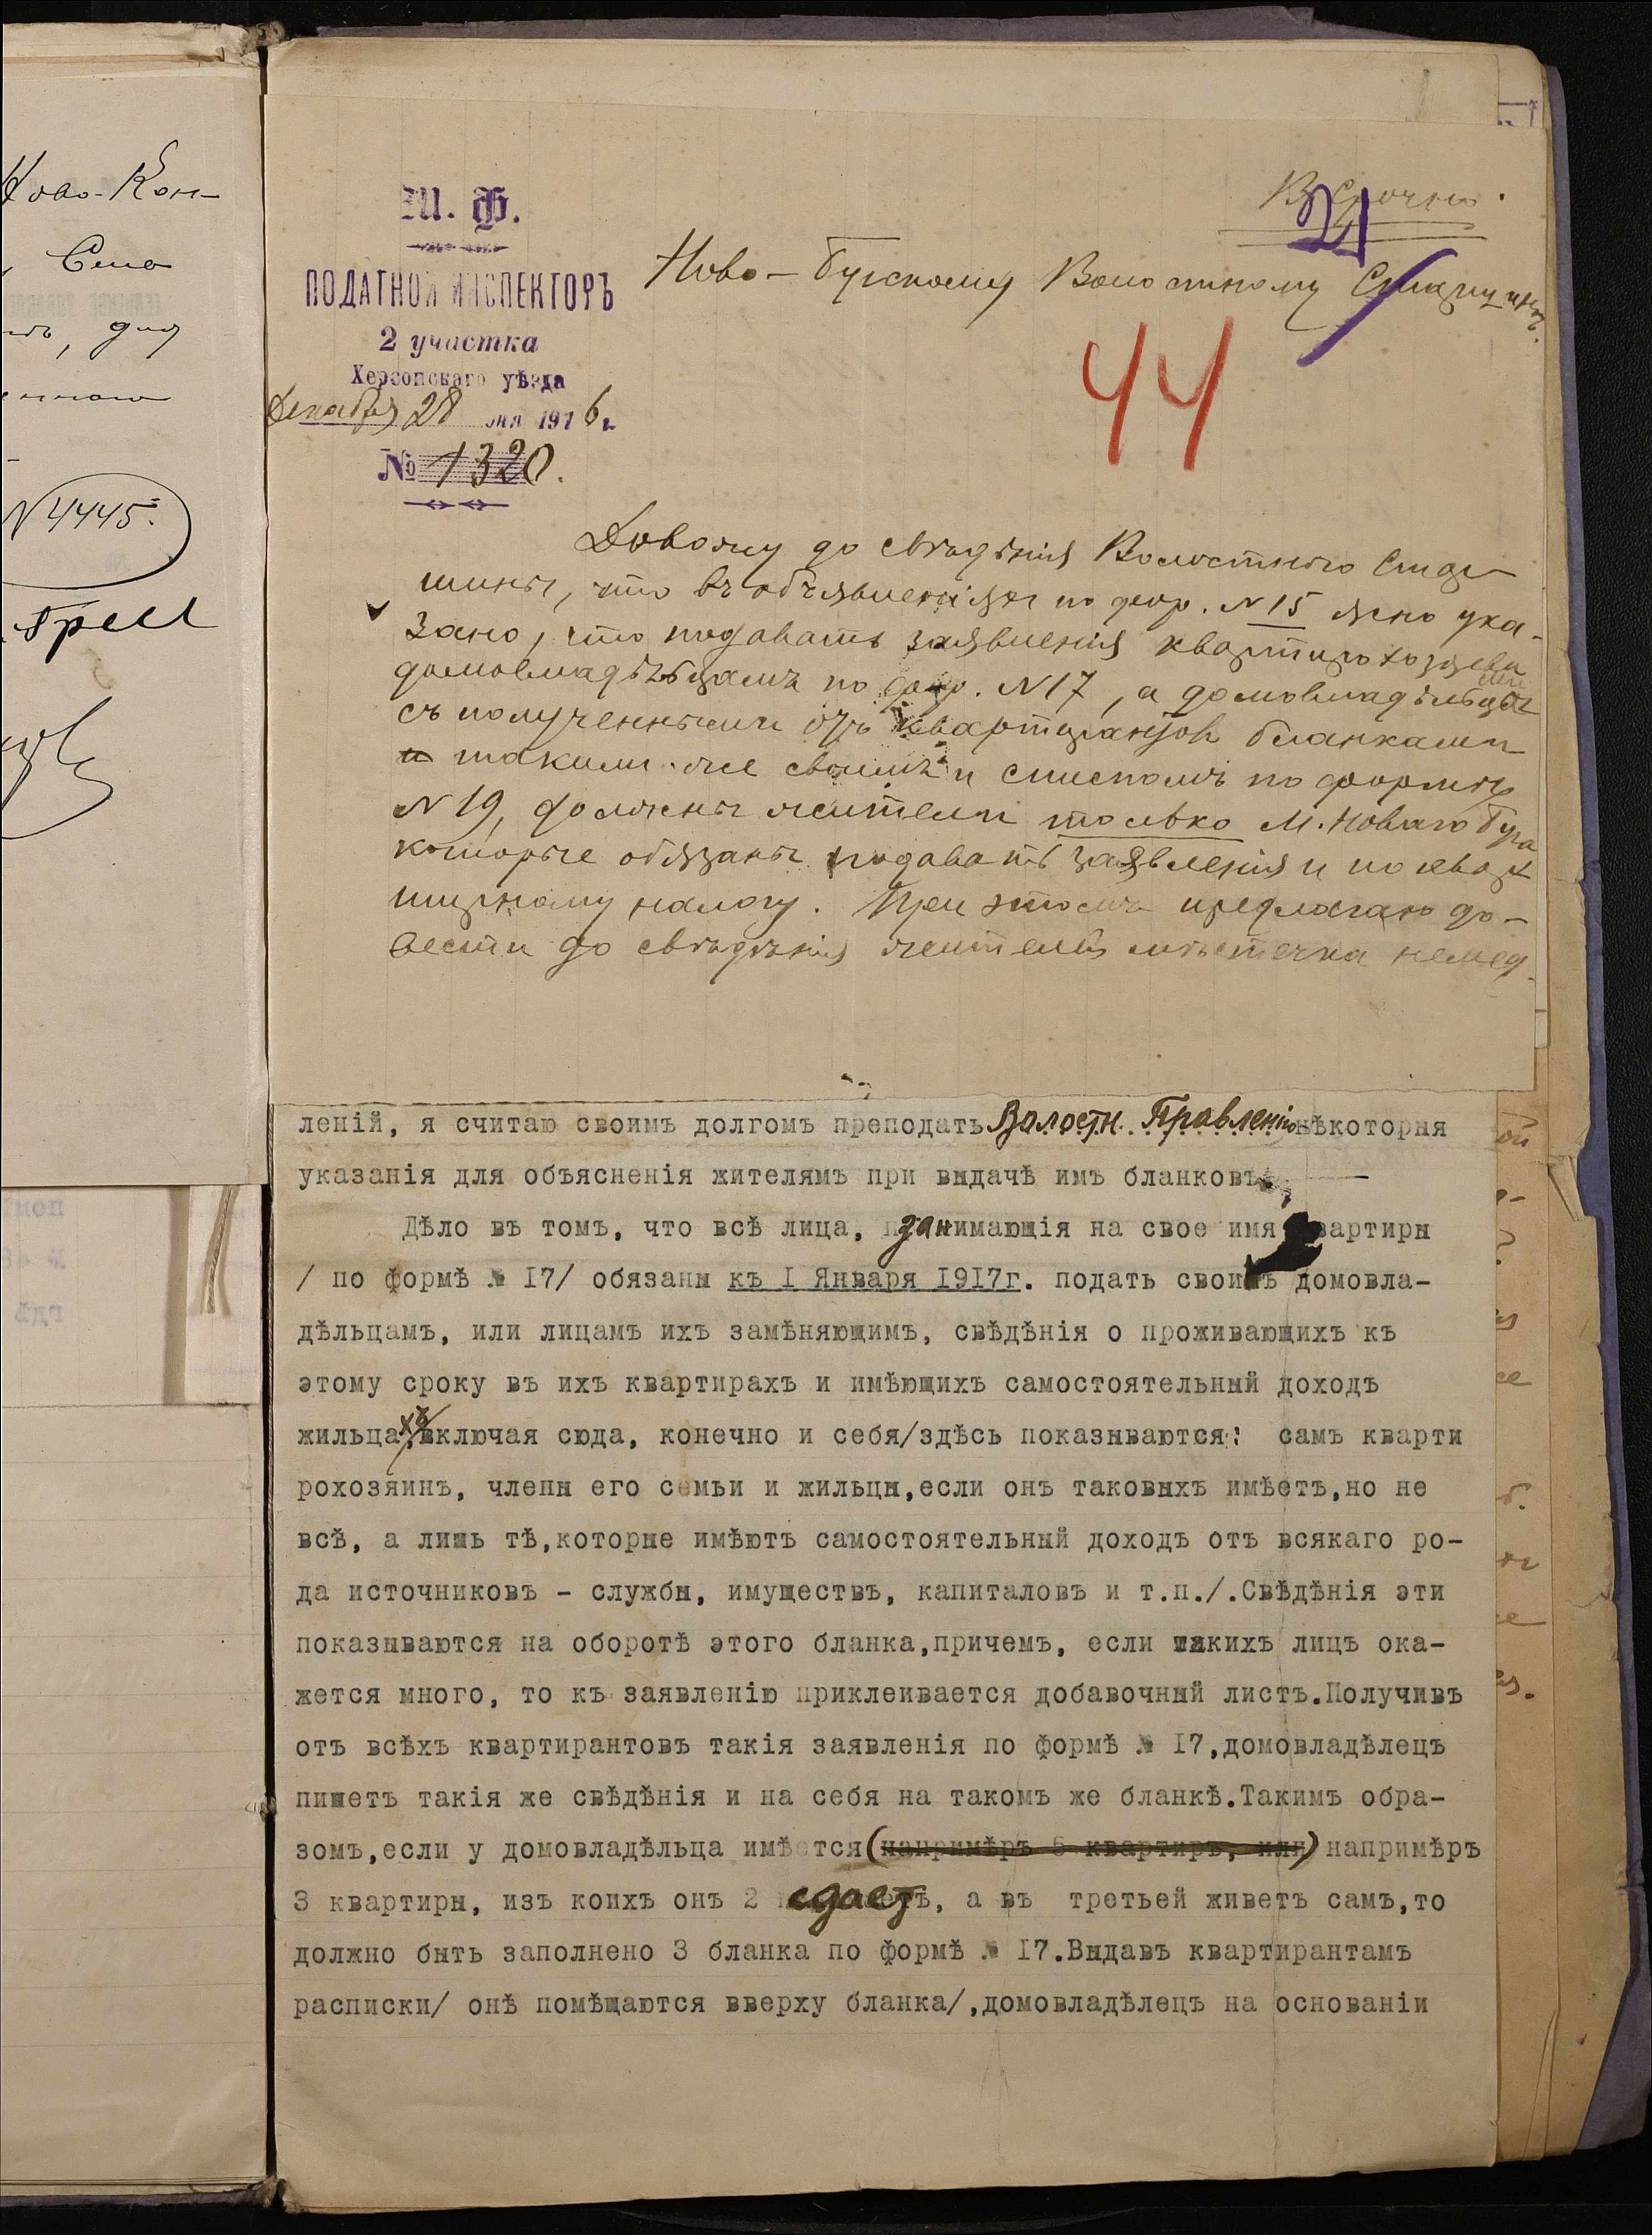 Ново-Кон-
Села
, для
№ 4445.
М. Ф.
ПОДАТНОЙ ИНСПЕКТОРЪ
2 участка
Херсонскаго уѣзда
Декабря 28 дня 1916 г.
№ 1320.
Срочно.
21
Ново-Бугскому Волостному Старшинѣ.
44
Довожу до свѣдѣнія Волостного Стар-
шины, что въ объявленіяхъ по фор. № 15 ясно ука-
зано, что подавать заявленія квартирохозяева
домовладѣльцамъ по фор. № 17, а домовладѣльцы
съ полученными отъ квартирантовъ бланками
и такими-же своими и спискомъ по формѣ
№ 19, должны жители только м. Новаго Буга
которые обязаны подавать заявленія и по квар
тирному налогу. При этомъ предлагаю до-
вести до свѣдѣнія жителей мѣстечка немед-
леній, я считаю своимъ долгомъ преподать Волостн. Правленію нѣкоторыя
указанія для объясненія жителямъ при выдачѣ имъ бланковъ
Дѣло въ томъ, что всѣ лица, занимающія на свое имя квартиры
/ по формѣ № I7/ обязаны къ I Января I9I7г. подать своимъ домовла-
дѣльцамъ, или лицамъ ихъ замѣняющимъ, свѣдѣнія о проживающихъ къ
этому сроку въ ихъ квартирахъ и имѣющихъ самостоятельный доходъ
жильцахъ, включая сюда, конечно и себя/здѣсь показываются: самъ кварти
рохозяинъ, члены его семьи и жильцы,если онъ таковыхъ имѣетъ,но не
всѣ, а лишь тѣ,которые имѣютъ самостоятельный доходъ отъ всякаго ро-
да источниковъ - службы, имуществъ, капиталовъ и т.п./.Свѣдѣнія эти
показываются на оборотѣ этого бланка,причемъ, если такихъ лицъ ока-
жется много, то къ заявленію приклеивается добавочный листъ.Получивъ
отъ всѣхъ квартирантовъ такія заявленія по формѣ № I7,домовладѣлецъ
пишетъ такія же свѣдѣнія и на себя на такомъ же бланкѣ.Такимъ обра-
зомъ,если у домовладѣльца имѣется (напримѣръ 5 квартиръ, или) напримѣръ
3 квартиры, изъ коихъ онъ 2 сдаетъ, а въ третьей живетъ самъ,то
должно быть заполнено 3 бланка по формѣ № I7.Выдавъ квартирантамъ
расписки/ онѣ помѣщаются вверху бланка/,домовладѣлецъ на основаніи